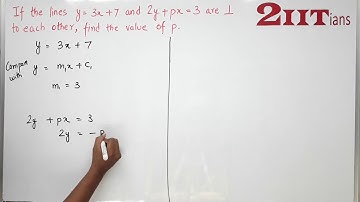 If the lines y = 3x + 7 and 2y + px = 3 are ⊥
to each other, find the value of p.
2IITians
y = 3x + 7
Compare with y = m₁x + C₁
m₁ = 3
2y + px = 3
2y = - p